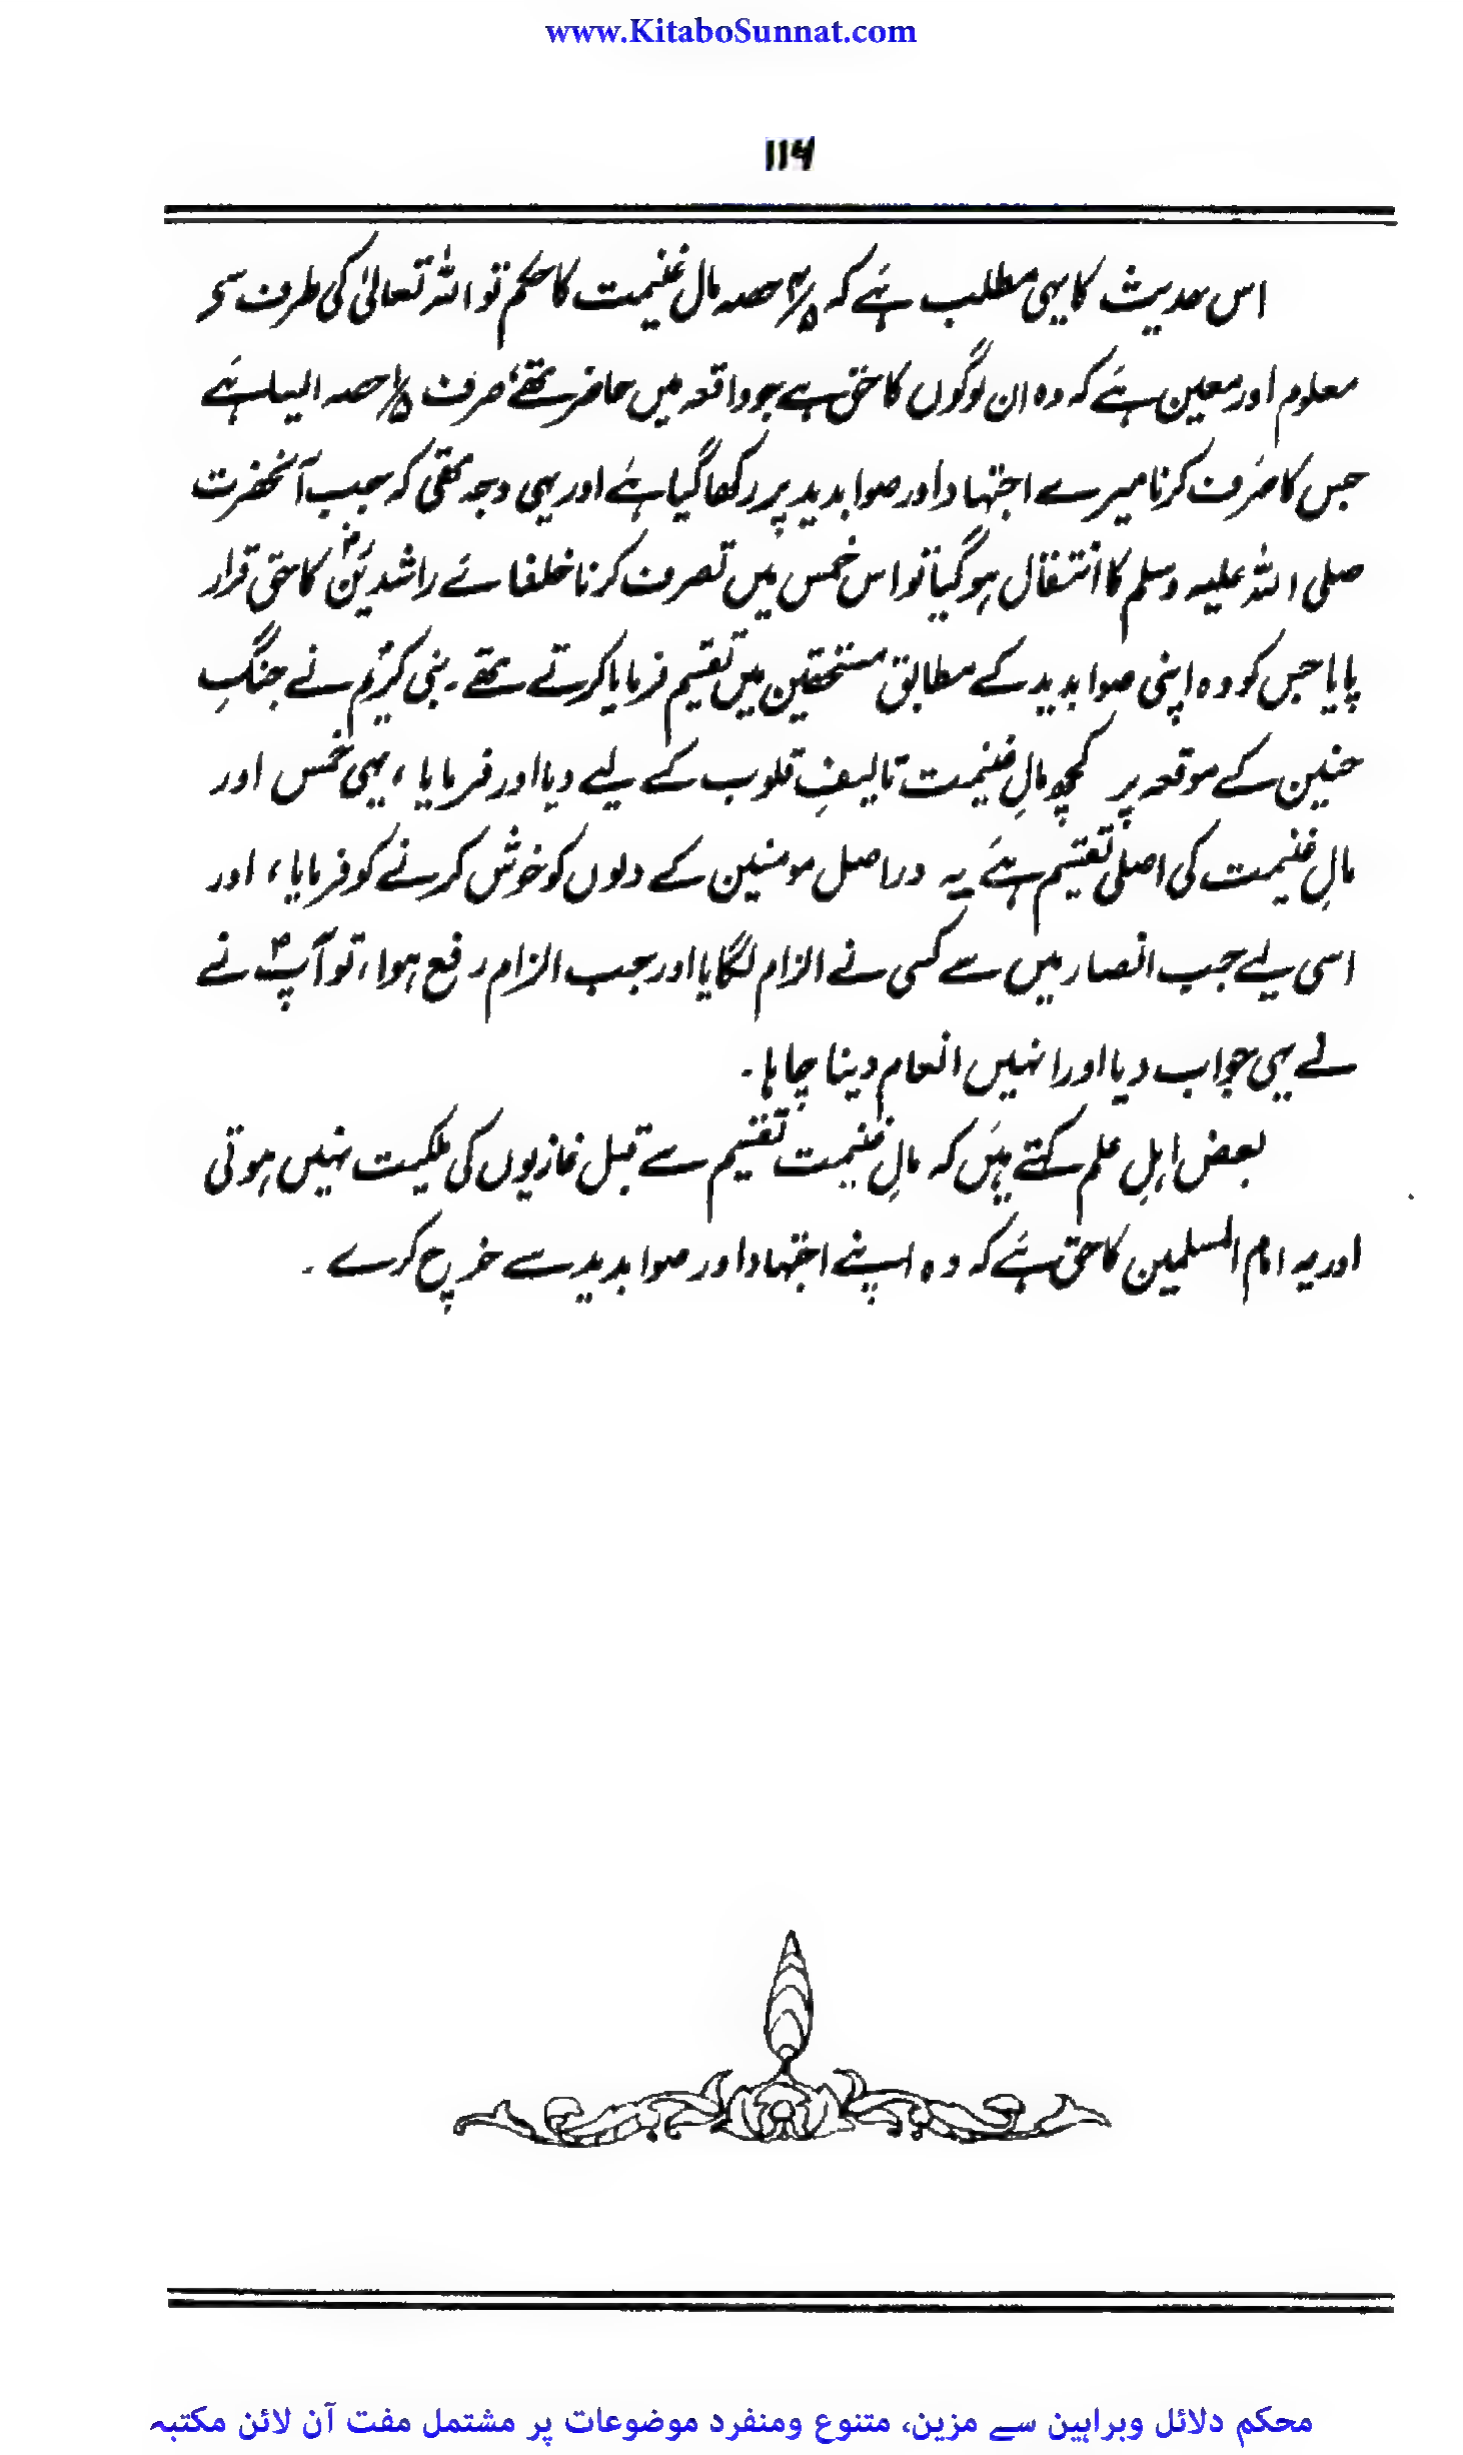 www.KitaboSunnat.com
۱۱۶
اس حدیث کا یہی مطلب ہے کہ ۴/۵ حصہ مال غنیمت کا حکم تو اللہ تعالیٰ کی طرف سے
معلوم اور معین ہے کہ وہ ان لوگوں کا حق ہے جو واقعہ میں حاضر تھے، صرف ۱/۵ حصہ ایسا ہے
جس کا صَرف کرنا میرے اجتہاد اور صوابدید پر رکھا گیا ہے اور یہی وجہ تھی کہ جب آنحضرت
صلی اللہ علیہ وسلم کا انتقال ہو گیا تو اس خمس میں تصرف کرنا خلفائے راشدینؓ کا حق قرار
پایا جس کو وہ اپنی صوابدید کے مطابق مستحقین میں تقسیم فرمایا کرتے تھے۔ نبی کریمؐ نے جنگِ
حنین کے موقعہ پر کچھ مالِ غنیمت تالیفِ قلوب کے لیے دیا اور فرمایا، یہی خمس اور
مالِ غنیمت کی اصلی تقسیم ہے یہ دراصل مومنین کے دلوں کو خوش کرنے کو فرمایا، اور
اسی لیے جب انصار میں سے کسی نے الزام لگایا اور جب الزام رفع ہوا، تو آپؐ نے
نے یہی جواب دیا اور انہیں انعام دینا چاہا۔
بعض اہلِ علم کہتے ہیں کہ مالِ غنیمت تقسیم سے قبل غازیوں کی ملکیت نہیں ہوتی
اور یہ امام المسلمین کا حق ہے کہ وہ اپنے اجتہاد اور صوابدید سے خرچ کرے۔
محکم دلائل وبراہین سے مزین، متنوع ومنفرد موضوعات پر مشتمل مفت آن لائن مکتبہ